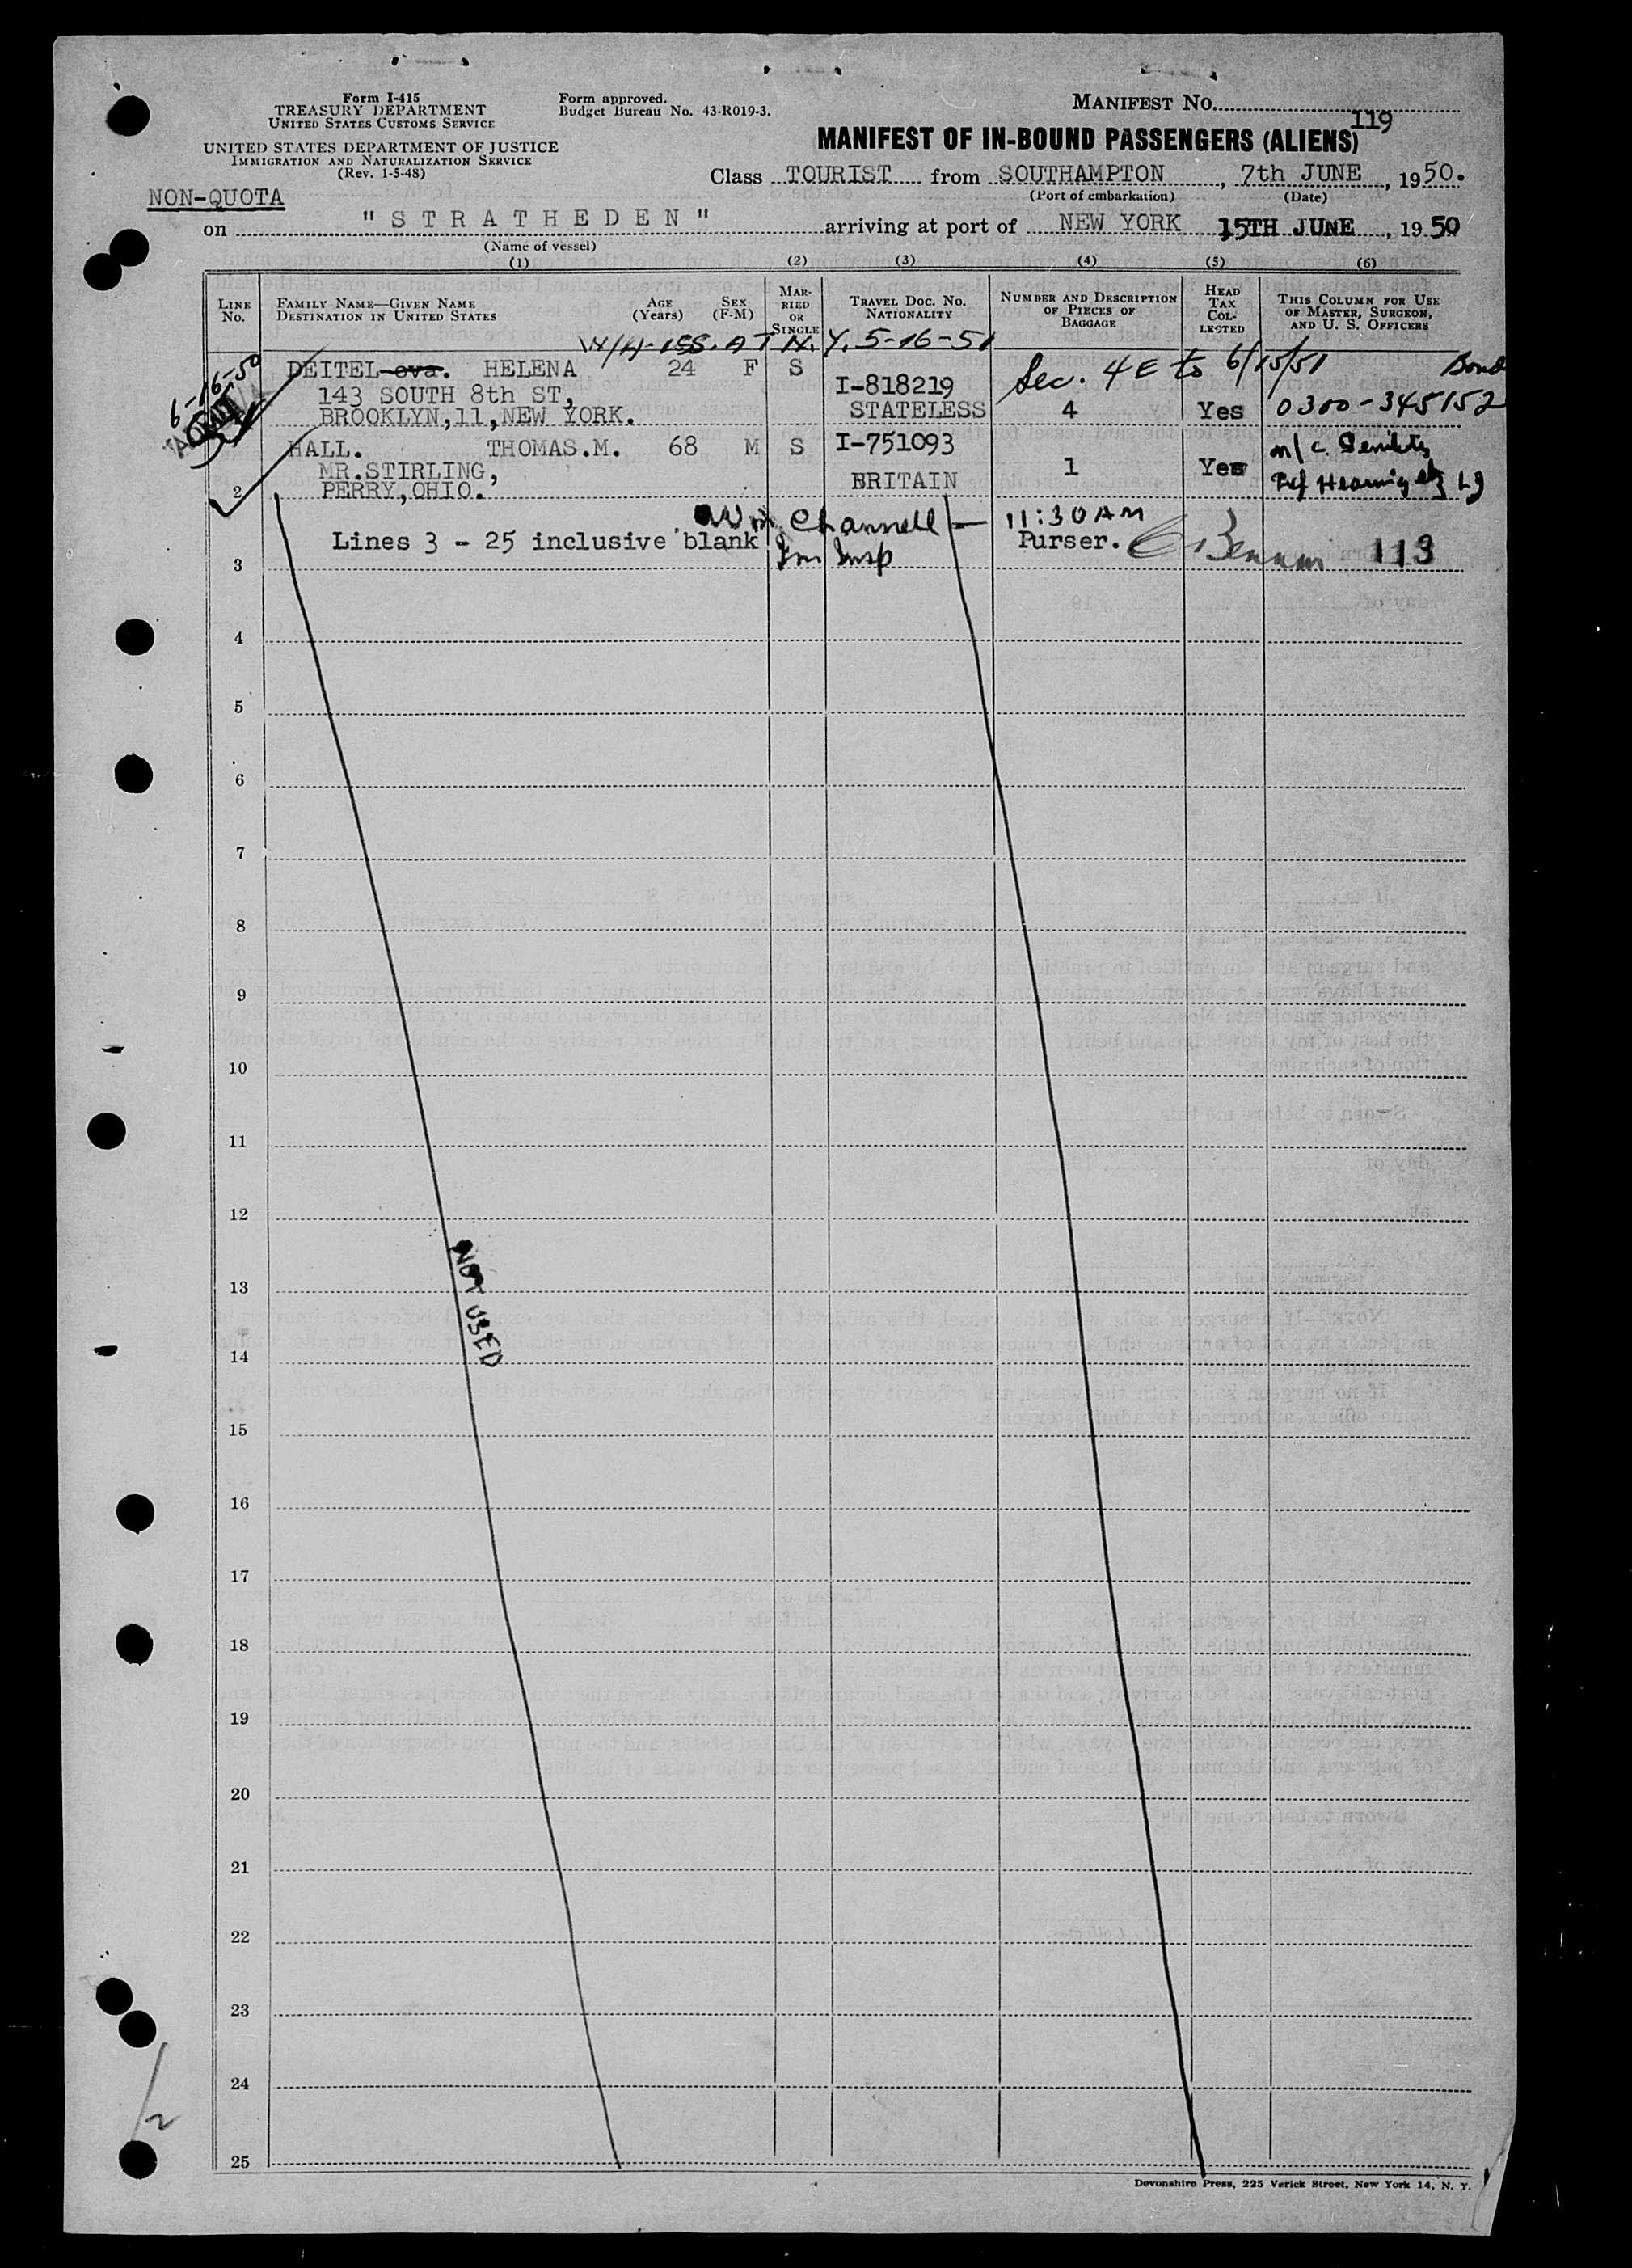 Form I-415
TREASURY DEPARTMENT
UNITED STATES CUSTOMS SERVICE
UNITED STATES DEPARTMENT OF JUSTICE
IMMIGRATION AND NATURALIZATION SERVICE
(Rev. 1-5-48)
Form approved.
Budget Bureau No. 43-R019-3.
MANIFEST NO.
119
MANIFEST OF IN-BOUND PASSENGERS (ALIENS)
Class TOURIST from SOUTHAMPTON, 7th JUNE, 1950.
(Port of embarkation) (Date)
NON-QUOTA
on "STRATHEDEN" arriving at port of NEW YORK 15TH JUNE, 1950
(Name of vessel)
(1) (2) (3) (4) (5) (6)
LINE No.
FAMILY NAME—GIVEN NAME DESTINATION IN UNITED STATES
AGE (Years)
SEX (F-M)
MARRIED OR SINGLE
TRAVEL DOC. NO. NATIONALITY
NUMBER AND DESCRIPTION OF PIECES OF BAGGAGE
HEAD TAX COLLECTED
THIS COLUMN FOR USE OF MASTER, SURGEON, AND U. S. OFFICERS
W/H-ISS. AT N.Y. 5-16-51
6-16-50
DEITEL-ova. HELENA 24 F S I-818219 Sec. 4E to 6/15/51 Bond
143 SOUTH 8th ST,
BROOKLYN,11,NEW YORK. STATELESS 4 Yes 0300-345152
HALL. THOMAS.M. 68 M S I-751093 m/c. Senility
MR.STIRLING, 1 Yes
2 PERRY,OHIO. BRITAIN
Channell 11:30AM
Lines 3 - 25 inclusive blank Purser. 113
Im Insp
3
4
5
6
7
8
9
10
11
12
13
NOT USED
14
15
16
17
18
19
20
21
22
23
24
25
Devonshire Press, 225 Varick Street, New York 14, N. Y.